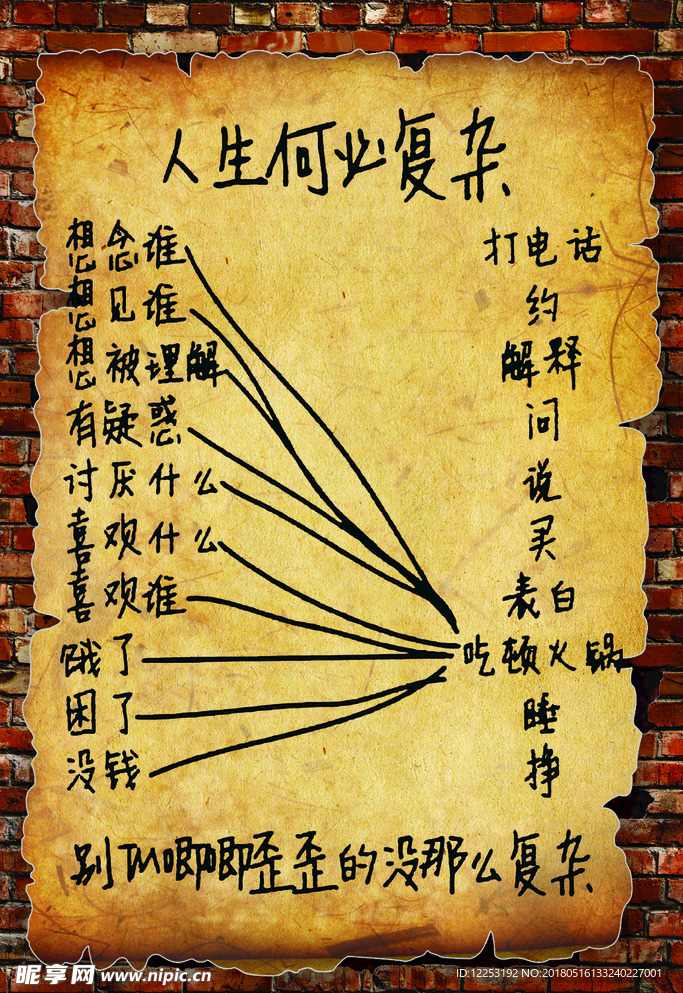 人生何必复杂
想念谁 打电话
想见谁 约
想被理解 解释
有疑惑 问
讨厌什么 说
喜欢什么 买
喜欢谁 表白
饿了 吃顿火锅
困了 睡
没钱 挣
别TM唧唧歪歪的没那么复杂
昵享网 www.nipic.cn
ID:12253192 NO:20180516133240227001